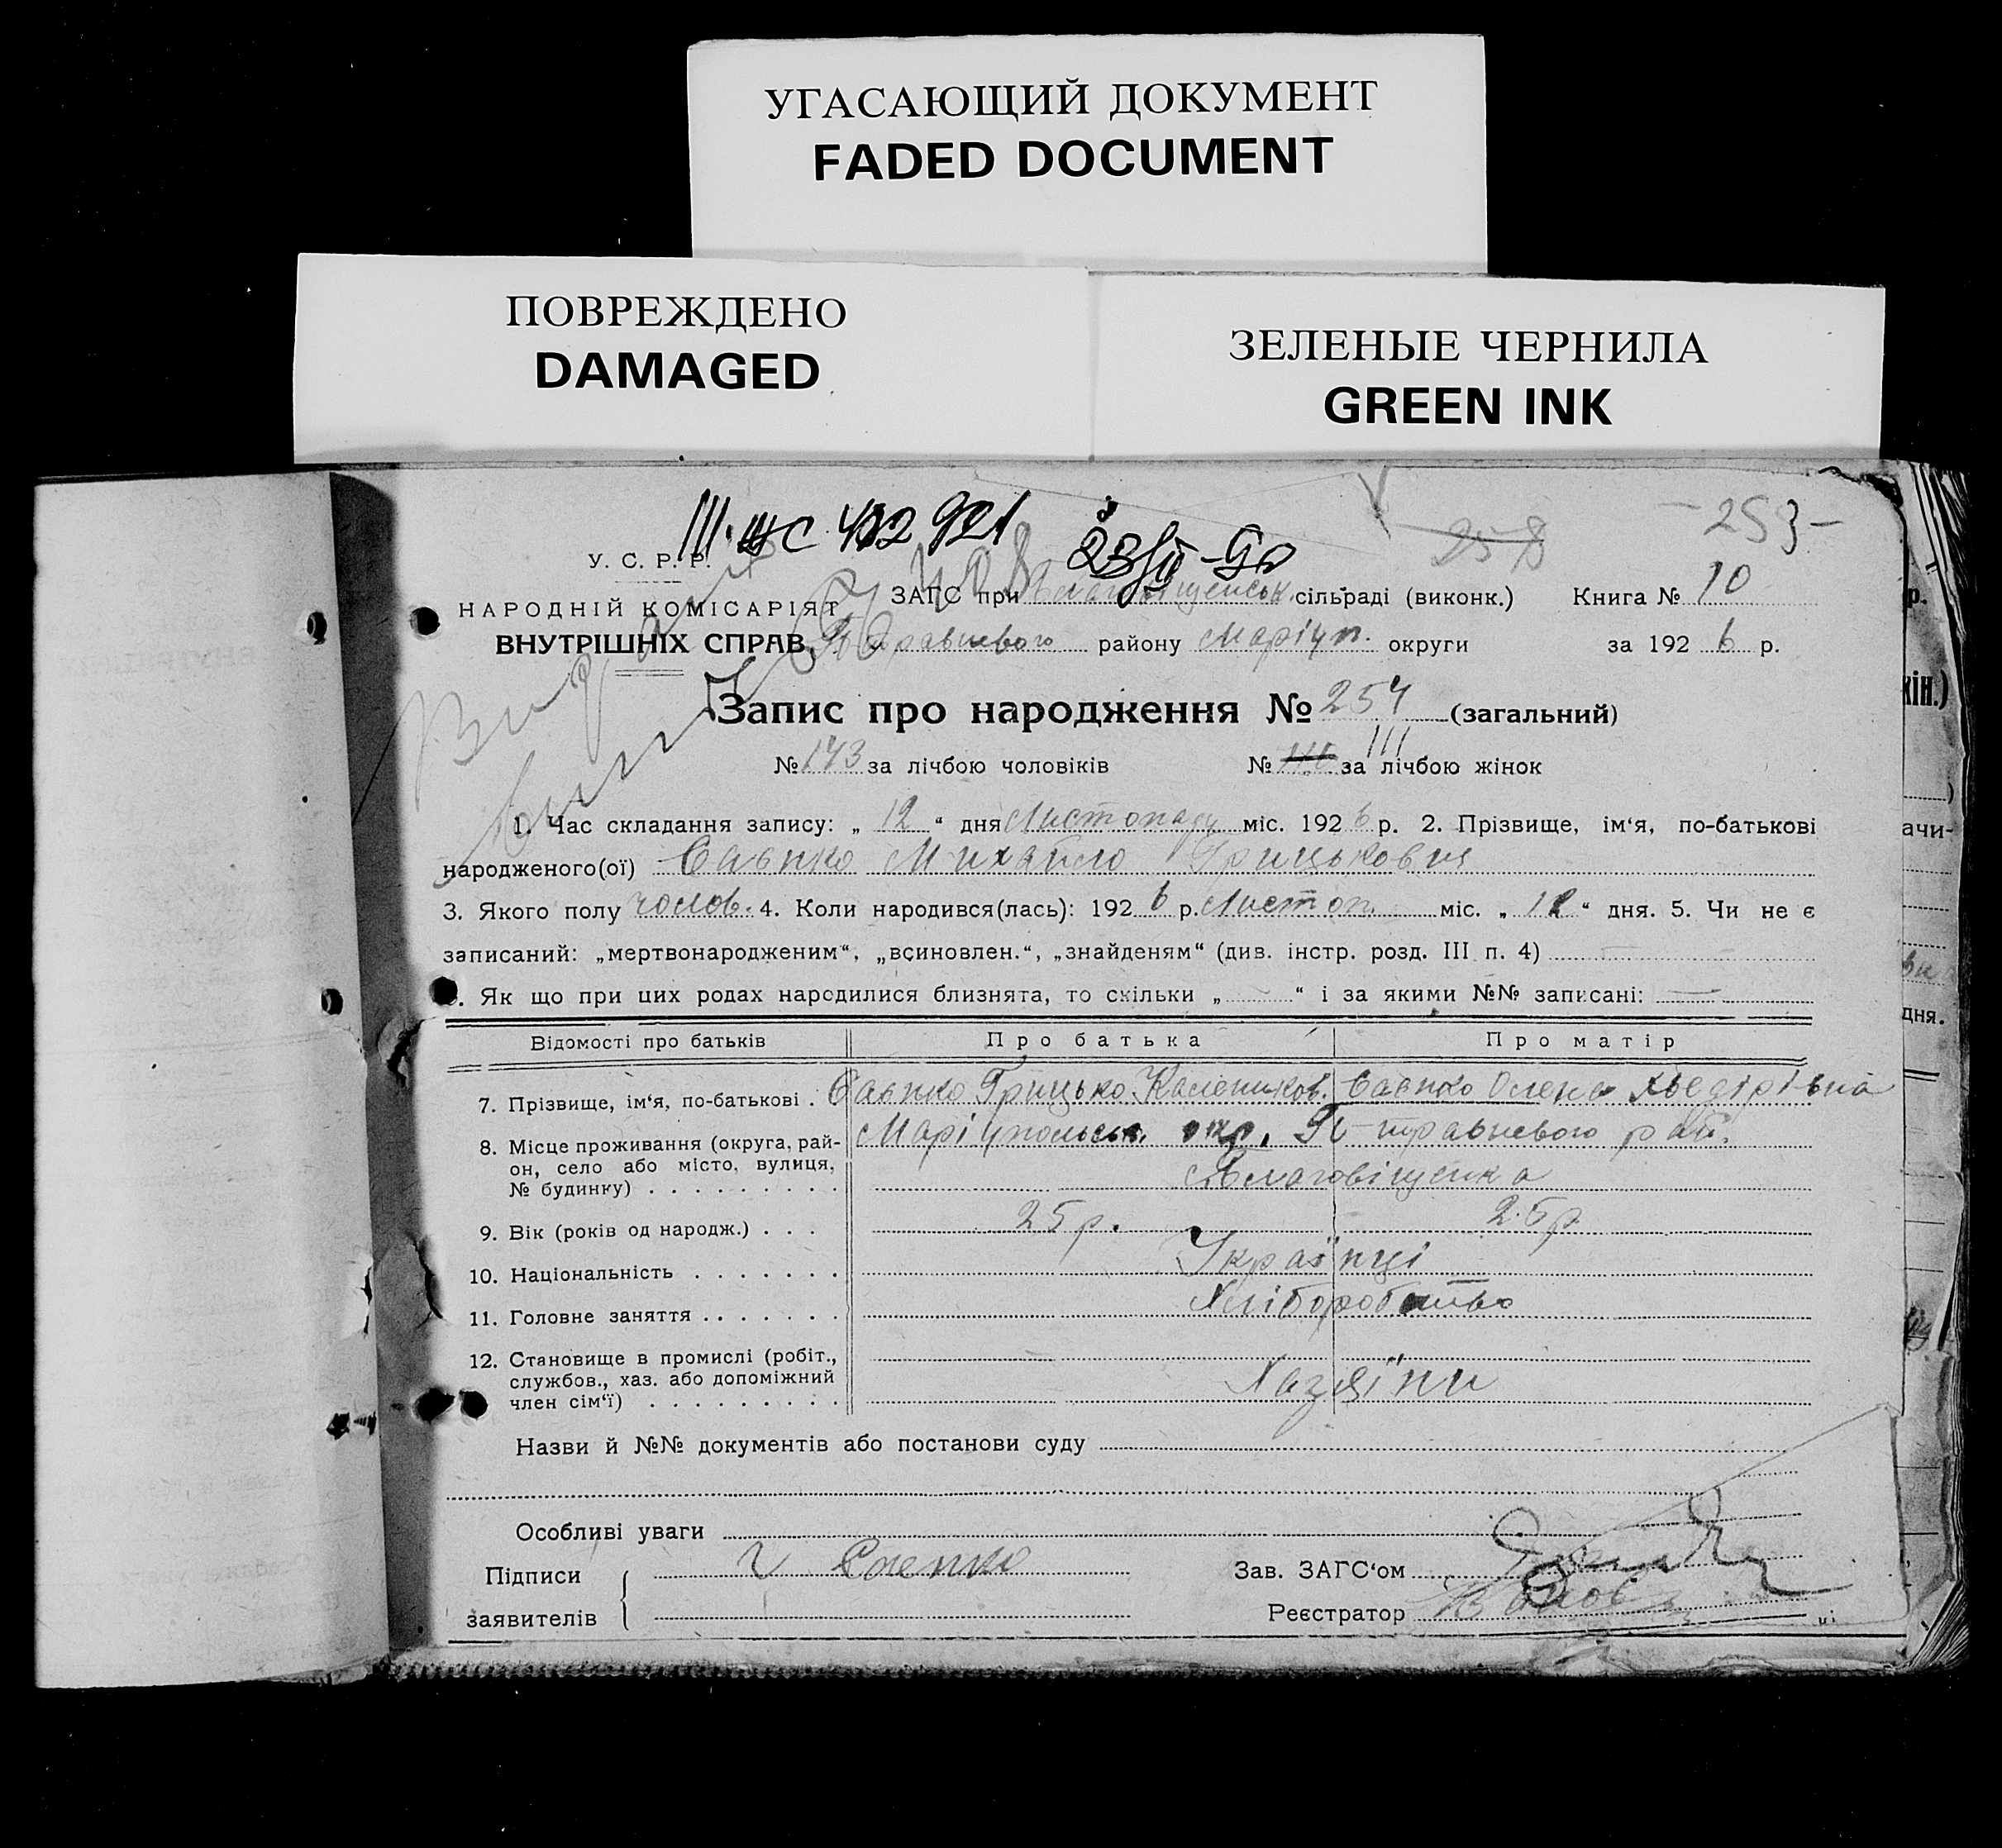 УГАСАЮЩИЙ ДОКУМЕНТ
FADED DOCUMENT
ПОВРЕЖДЕНО
DAMAGED
ЗЕЛЕНЫЕ ЧЕРНИЛА
GREEN INK
-253-
258
У. С. Р. Р.
НАРОДНІЙ КОМІСАРІЯТ
ВНУТРІШНІХ СПРАВ
ЗАГС при сільраді (виконк.) Книга № 10
району Маріуп. округи за 1926 р.
Запис про народження № 254 (загальний)
№ 143 за лічбою чоловіків № 111 за лічбою жінок
1. Час складання запису: „ 12 “ дня Листопаду міс. 1926 р. 2. Прізвище, ім'я, по-батькові
народженого(ої) Саєнко Михайло Грицькович
3. Якого полу чолов. 4. Коли народився(лась): 1926 р. Листоп. міс. „ “ дня. 5. Чи не є
записаний: „мертвонародженим“, „всиновлен.“, „знайденям“ (див. інстр. розд. III п. 4)
. Як що при цих родах народилися близнята, то скільки „ “ і за якими №№ записані: —
Відомості про батьків Про батька Про матір
7. Прізвище, ім'я, по-батькові . Саєнко Грицько Калеников. Саєнко Олена Хведірівна
8. Місце проживання (округа, рай- Маріупольськ. окр. травневого рай.
он, село або місто, вулиця,
№ будинку) . . . . . . . . . Благовіщенка
9. Вік (років од народж.) . . . 25 р. 25 р
10. Національність . . . . . . . Українці
11. Головне заняття . . . . . . . Хліборобство
12. Становище в промислі (робіт.,
службов., хаз. або допоміжний Хазяїни
член сім'ї) . . . . . . . . .
Назви й №№ документів або постанови суду
Особливі уваги
Підписи Зав. ЗАГС'ом
заявителів Реєстратор